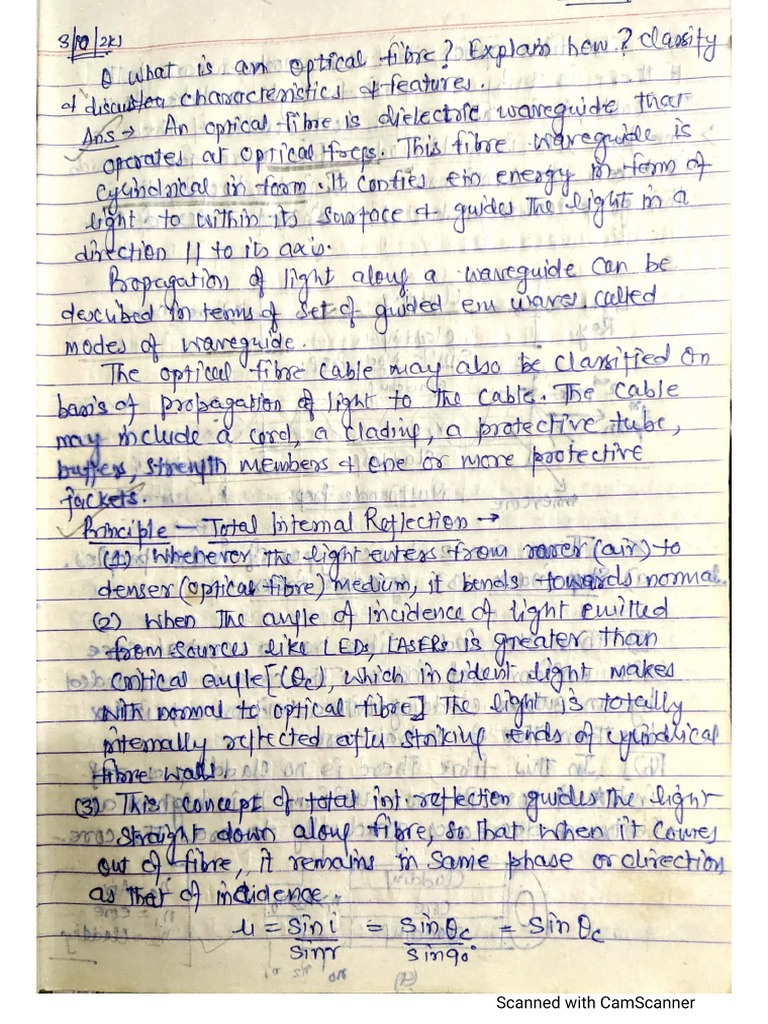 3/10/2K1
Q what is an optical fibre? Explain how? Classify
& discuss characteristics & features.
Ans → An optical fibre is dielectric waveguide that
operates at optical freps. This fibre waveguide is
cylindrical in form. It confies em energy in form of
light to within its surface & guides the light in a
direction || to its axis.
Propagation of light along a waveguide can be
described in terms of set of guided em waves, called
modes of waveguide.
The optical fibre cable may also be classified on
basis of propagation of light to the cable. The cable
may include a cord, a clading, a protective tube,
buffers, strength members & one or more protective
jackets.
Principle — Total Internal Reflection →
(1) Whenever the light enters from rarer (air) to
denser (optical fibre) medium, it bends towards normal.
(2) When the angle of incidence of light emitted
from sources like LEDs, LASERs is greater than
critical angle [(θc), which incident light makes
with normal to optical fibre] the light is totally
internally reflected after striking ends of cylindrical
fibre walls
(3) This concept of total int reflection guides the light
straight down along fibre, so that when it comes
out of fibre, it remains in same phase or direction
as that of incidence.
μ = Sin i / Sin r = Sin θc / Sin 90° = Sin θc
Scanned with CamScanner